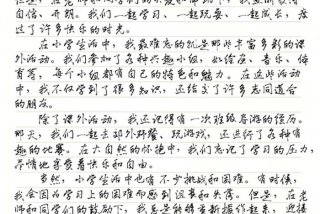 自信、开朗。我们一起学习、一起玩耍、一起成长,度
过了许多快乐的时光。
在小学生活中,我最难忘的就是那些丰富多彩的课
外活动。我们参加了各种兴趣小组,如绘画、音乐、体
育等,每个小组都有自己的特色和魅力。在这些活动
中,我不仅学到了很多知识,还结交了许多志同道合
的朋友。
除了课外活动,我还记得有一次班级春游的经历。
那天,我们一起去郊外野餐、玩游戏,还进行了各种有
趣的比赛。在大自然的怀抱中,我们忘记了学习的压力,
尽情地享受着快乐和自由。
当然,小学生活中也有不少挑战和困难。有时候,
我会因为学习上的困难而感到沮丧和失落。但是,在老
师和同学们的鼓励下,我总是能够重新振作起来,迎接